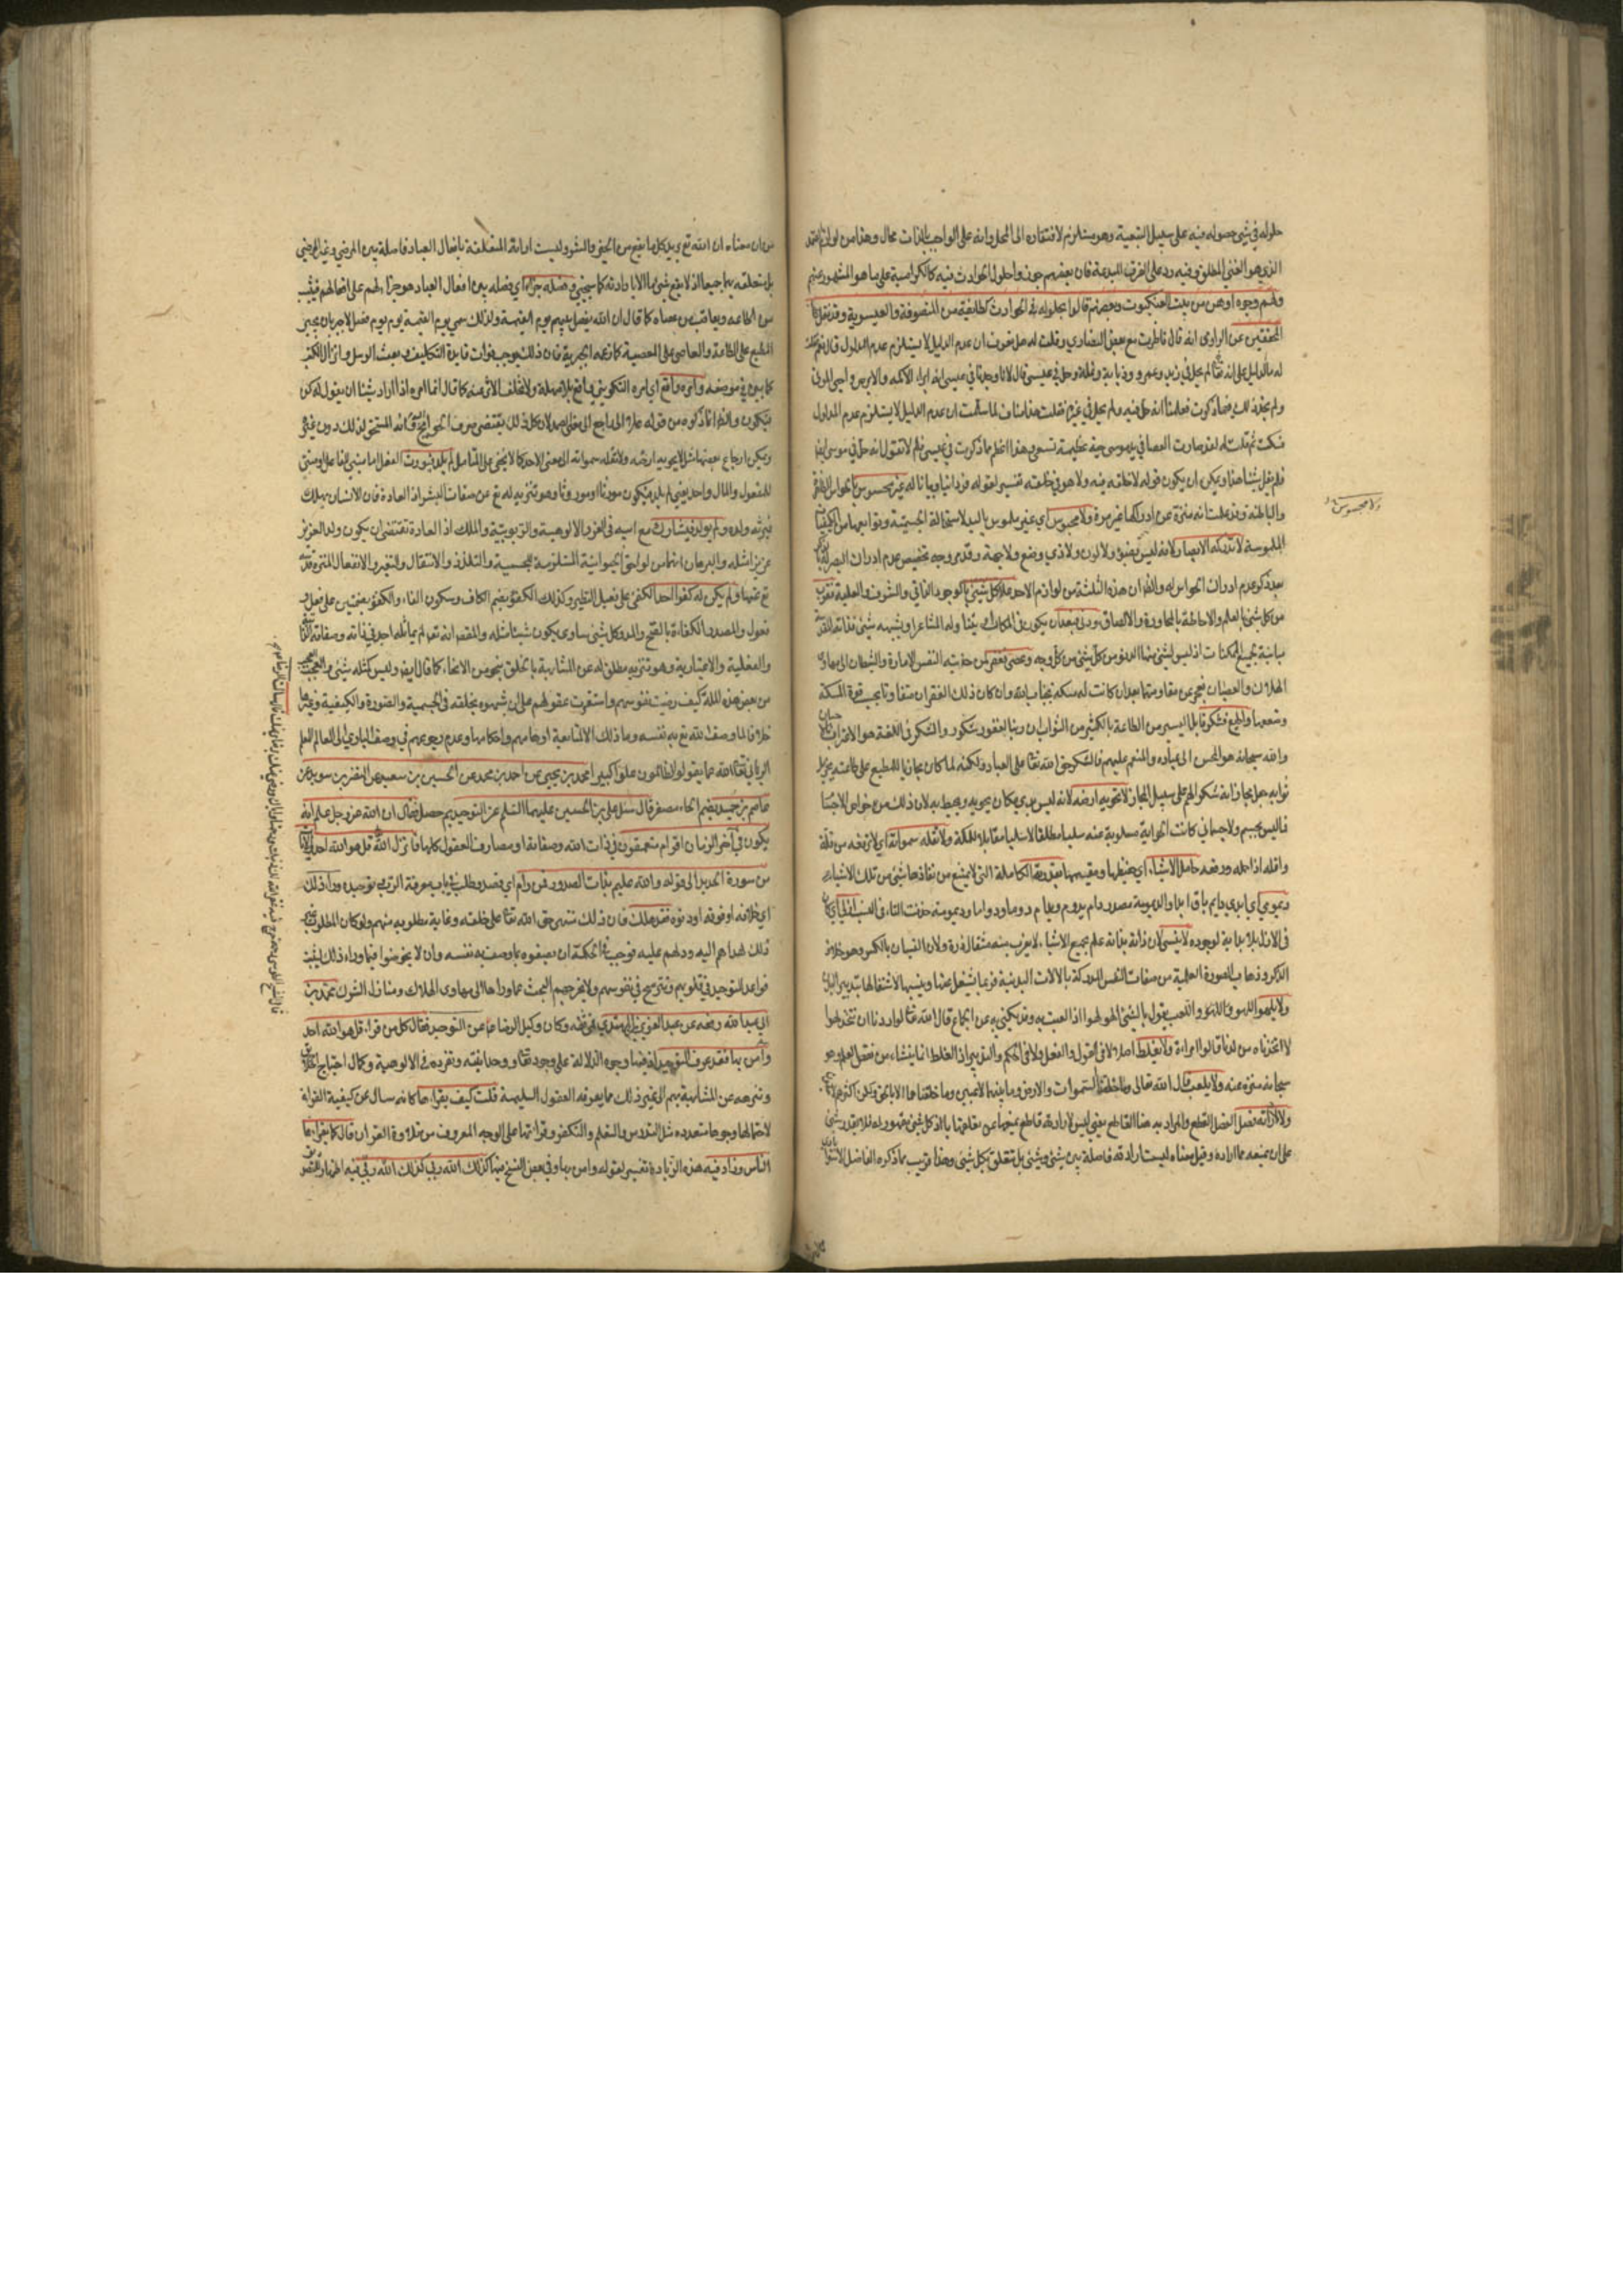 حلوله في شيء حصوله فيه على سبيل التبعية وهو يستلزم لافتقاره الى المحل وانه على الواجب بالذات محال وهذا من لوازم الصمد
الذي هو الغني المطلق وفيه رد على الفرق المبدعة فان بعضهم جوزوا حلول الحوادث فيه كالكرامية على ما هو المشهور عنهم
ولهم وجوه اوهن من بيت العنكبوت وبعضهم قالوا بحلوله في الحوادث كطايفة من المتصوفة والعيسوية وقد نقل
المحققين عن الرازي انه قال ناظرت مع بعض النصارى وقلت له هل تعرف ان عدم الدليل لا يستلزم عدم المدلول قال نعم فقلت
له ما الدليل على انه تعالى لم يحل في زيد وعمرو وذبابة ونملة وحل في عيسى قال لانا وجدنا في عيسى انه ابراء الاكمه والابرص واحيى الموتى
ولم يجد ذلك فيما ذكرت فعلمنا انه حل فيه ولم يحل في غيره فقلت هذا مناف لما سلمت ان عدم الدليل لا يستلزم عدم المدلول
فسكت ثم قلت له لقد صارت العصا في يد موسى حية عظيمة تسعى وهذا اعظم مما ذكرت في عيسى فلم لا تقول انه حل في موسى ايضا
فلم يقل شيئا هذا ويمكن ان يكون قوله لا خلقه فيه ولا هو في خلقه تفسيرا لقوله فردانيا وبيانا له غير محسوس بالحواس الظاهرة
والباطنة وقد علمت انه منزه عن ادراكها غير مرة ولا مجسوس اي غير ملموس باليد لاستحالة الجسمية وتوابعها من الكيفيات
الملموسة لا تدركه الابصار لانه ليس بضوء ولا لون ولا ذي وضع ولا جهة وقد مر وجه تخصيص عدم ادراك البصر له بالذكر
بعد ذكر عدم ادراك الحواس له والظ ان هذه الثلثة من لوازم الاحد علا كل شيء بالوجود الذاتي والشرف والعلية فقرب
من كل شيء بالعلم والاحاطة لا بالمجاورة والالصاق ودنى فبعد ان يكون في المكان
مباينة لجميع الممكنات اذ ليس لشيء منها الدنو من كل شيء من كل وجه وعصي فغفر من جذبته النفس الامارة والشيطان الى مهاوي
الهلاك والعصيان فعجز عن مقاومتهما بعد ان كانت له مسكة وان كان ذلك الغفران متفاوتا بحسب قوة المسكة
وضعفها واطيع فشكر قابل اليسير من الطاعة بالكثير من الثواب ان ربنا لغفور شكور والشكر في اللغة هو الاعتراف بالاحسان
والله سبحانه هو المحسن الى عباده والمنعم عليهم فالشكر حق الله تعالى على العباد ولكنه لما كان مجازيا للمطيع على طاعته بجزيل
ثوابه جعل مجازاته شكرا لهم على سبيل المجاز لا تحويه ارضه لانه ليس بذي مكان يحويه ويحيط به لان ذلك من خواص الاجسام
فما ليس بجسم ولا جسماني كانت الحواية مسلوبة عنه سلبا مطلقا لا سلبا مقابلا للملكة ولا تقله سمواته اي لا ترفعه من قله
واقله اذا حمله ورفعه حامل الاشياء اي حفيظها ومقيمها بقدرته الكاملة التي لا يمتنع من نفاذها شيء من تلك الاشياء
ديمومي اي ابدي دايم باق ابدا والديمومة مصدر دام يدوم ويدام دوما ودواما وديمومة حذفت التاء في النسب ازلي اي كان
في الازل بلا بداية لوجوده لا ينسى لان ذاته بذاته علم بجميع الاشياء لا يعزب عنه مثقال ذرة ولان النسيان بالكسر وهو خلاف
الذكر وذهاب الصورة العلمية من صفات النفس المدركة بالالات البدنية فربما يشتغل عنها وينسيها لاشتغالها بتدبير البدن
ولا يلهو اللهو واللعب يقول بالشيء الهو لهوا اذا لعبت به وقد يكنى به عن الجماع قال الله تعالى لو اردنا ان نتخذ لهوا
لاتخذناه من لدنا قالوا امراة ولا يغلط اصلا لا في القول والفعل ولا في الحكم والتدبير اذ الغلط انما ينشاء من نقص العلم وهو
سبحانه منزه عنه ولا يلعب قال الله تعالى وما خلقنا السموات والارض وما بينهما لاعبين وما خلقناهما الا بالحق ولكن اكثرهم لا
ولا لارادته فصل الفصل القطع والمراد به هنا القاطع يعني ليس لارادته قاطع يمنعها عن تعلقها بالمراد اذ كل شيء مقهور له فلا يقدر شيء
على ان يمنعه عما اراده وقيل معناه ليست ارادته فاصلة بين شيء وشيء بل تتعلق بكل شيء وهذا قريب مما ذكره الفاضل
ولا مجسوس
من ان معناه ان الله تع يريد كل ما يقع من الخير والشر وليست ارادته المتعلقة بافعال العباد فاصلة بين المرضي وغير المرضي
بل متعلقة بهما جميعا اذ لا يقع شيء ما الا بارادته كما سيجيء وفصله جزاء اي فصله بين افعال العباد هو جزاء لهم على افعالهم فيثيب
من اطاعه ويعاقب من عصاه كما قال ان الله يفصل بينهم يوم القيمة ولذلك سمي يوم القيمة يوم الفصل لا جريان يجبر
المطيع على الطاعة والعاصي على المعصية كما زعمه الجبرية فان ذلك يوجب فوات فايدة التكليف وبعث الرسل وانزال الكتب
كما بين في موضعه وامره واقع اي امره التكويني واقع بلا مهلة ولا يتخلف الاثر عنه كما قال انما امره اذا اراد شيئا ان يقول له كن
فيكون والظ ان ما ذكره من قوله علا الى
ويمكن ارجاع بعضها مثل لا تحويه ارضه ولا تقله سمواته الى معنى الاحد كما لا يخفى على المتامل لم يلد فيورث الفعل اما مبني للفاعل او مبني
للمفعول والمال واحد يعني لم يلد فيكون مورثا او موروثا وهو تنزيه له تع عن صفات البشر اذ العادة فان الانسان يهلك
فيرثه ولده ولم يولد فيشارك مع ابيه في العز والالوهية والربوبية والملك اذ العادة تقتضي ان يكون ولد العزيز
عزيزا مثله والبرهان انهما من لواحق الحيوانية المستلزمة للجسمية والتلذذ والانتقال والتغير والانفعال المنزه قدسه
تع عنها ولم يكن له كفوا احد الكفئ على فعيل النظير وكذلك الكفؤ بضم الكاف وسكون الفاء والكفؤ بضمتين على فعل و
فعول والمصدر الكفاءة بالفتح والمد وكل شيء ساوى يكون شيئا مثله والمقصود انه تع لم يماثله احد في ذاته وصفاته الذاتية
والفعلية والاعتبارية وهو تنزيه مطلق له عن المشابهة بالخلق بنحو من الانحاء كما قال ايضا وليس كمثله شيء والعجب
من بعض هذه الملة كيف رضيت نفوسهم واستقرت عقولهم على ان يشبهوه بخلقه في الجسمية والصورة والكيفية وغيرها
خلافا لما وصف الله تع به نفسه وما ذلك الا لمتابعة اوهامهم واحكامها وعدم رجوعهم في وصف الباري الى العالم المعلم
الرباني تعالى الله عما يقول الظالمون علوا كبيرا محمد بن يحيى عن احمد بن محمد عن الحسين بن سعيد عن النضر بن سويد عن
عاصم بن حميد بضم الحاء مصغر قال سئل علي بن الحسين عليهما السلم عن التوحيد فقال ان الله عز وجل علم انه
يكون في آخر الزمان اقوام متعمقون في ذات الله وصفاته او مصارف العقول كلها فانزل الله قل هو الله احد والآيات
من سورة الحديد الى قوله والله عليم بذات الصدور فمن رام اي قصد وطلب في باب معرفة الرب وتوحيده وراء ذلك
اي خلافه او فوقه او دونه فقد هلك فان ذلك منتهى حق الله تعالى على خلقه وغاية مطلوبه منهم ولو كان المطلوب غير
ذلك لهداهم اليه ودلهم عليه فوجب في الحكمة ان يصفوه بما وصف به نفسه وان لا يخوضوا فيما وراء ذلك ليثبت
قواعد التوحيد في قلوبهم وتترسخ في نفوسهم ولا يخرجهم البحث عما وراها الى مهاوي الهلاك ومنازل الشرك محمد بن
ابي عبد الله رفعه عن عبد العزيز بن المهتدي قمي ثقه وكان وكيل الرضا عا عن التوحيد فقال كل من قرا قل هو الله احد
وآمن بها فقد عرف التوحيد لان فيها وجوه الدلالة على وجوده تعالى ووحدانيته وتفرده في الالوهية وكمال احتياج الخلق
وتنزهه عن المشابهة بهم الى غير ذلك مما يعرفه العقول السليمة قلت كيف يقراءها كانه سال عن كيفية القراءة
لاحتمالها وجوها متعددة مثل التدرس والتعلم والتفكر وقراءتها على الوجه المعروف من تلاوة القران قال كما يقراءها
الناس وزاد فيه هذه الزيادة تفسير لقوله وامن بها وفي بعض النسخ فيها كذلك الله ربي كذلك الله ربي فيه اظهار